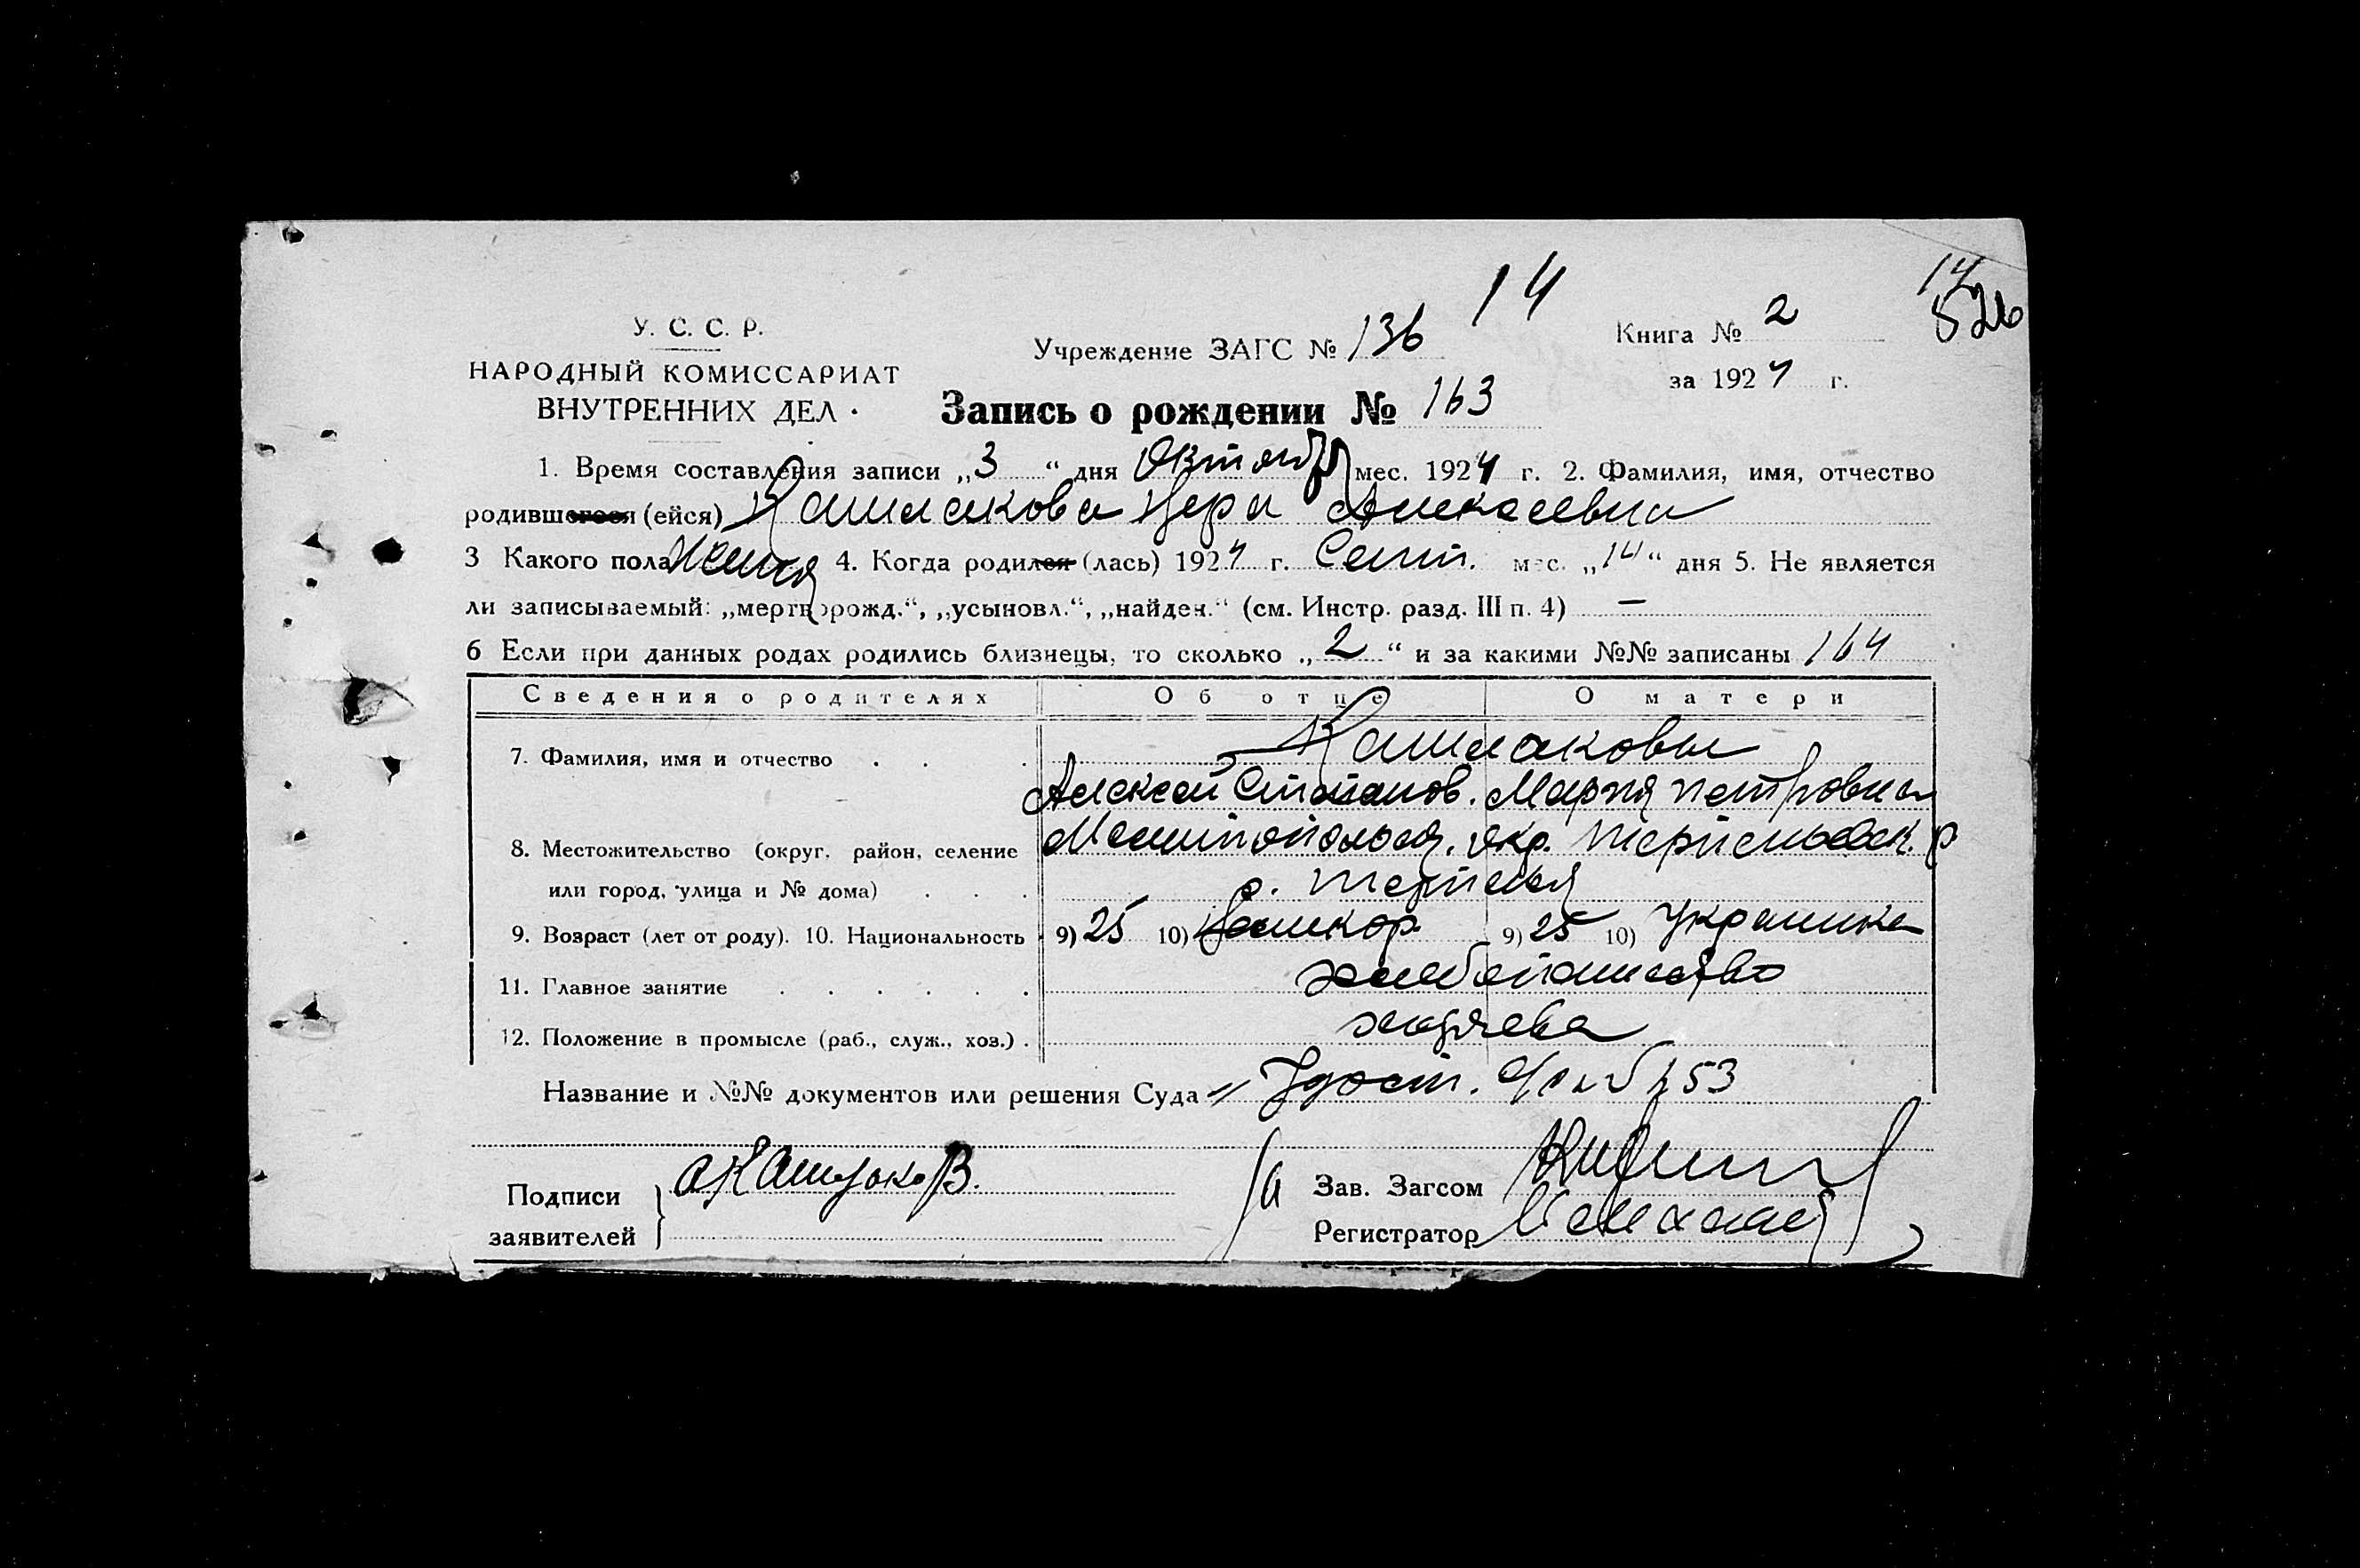 14
14
526
У. С. С. Р.
НАРОДНЫЙ КОМИССАРИАТ
ВНУТРЕННИХ ДЕЛ
Учреждение ЗАГС № 136
Книга № 2
за 1924 г.
Запись о рождении № 163
1. Время составления записи „3“ дня Октябр мес. 1924 г. 2. Фамилия, имя, отчество
родившегося (ейся) Кашлакова Вера Алексеевна
3 Какого пола женск 4. Когда родился (лась) 1924 г. Сент. мес. „14“ дня 5. Не является
ли записываемый: „мертворожд.“, „усыновл.“, „найден.“ (см. Инстр. разд. III п. 4) —
6 Если при данных родах родились близнецы, то сколько „2“ и за какими №№ записаны 164
Сведения о родителях Об отце О матери
7. Фамилия, имя и отчество Кашлаковы
Алексей Степанов. Мария Петровна
8. Местожительство (округ, район, селение Мелитопольск. окр. Терпеньевск. р
или город, улица и № дома) с. Терпенья
9. Возраст (лет от роду). 10. Национальность 9) 25 10) 9) 25 10) Украинка
11. Главное занятие хлебопашество
12. Положение в промысле (раб., служ., хоз.) хозяева
Название и №№ документов или решения Суда Удост. 53
Подписи
заявителей
Зав. Загсом
Регистратор